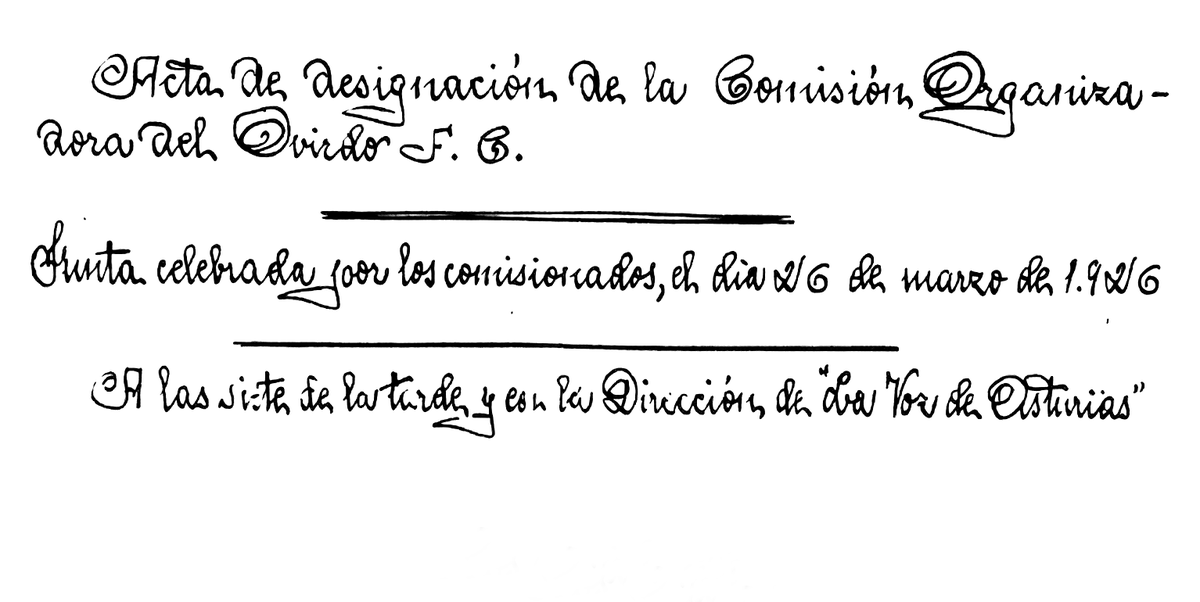 Acta de designación de la Comisión Organiza-
dora del Oviedo F. C.
Junta celebrada por los comisionados, el dia 26 de marzo de 1.926
A las siete de la tarde y en la Dirección de "La Voz de Asturias"